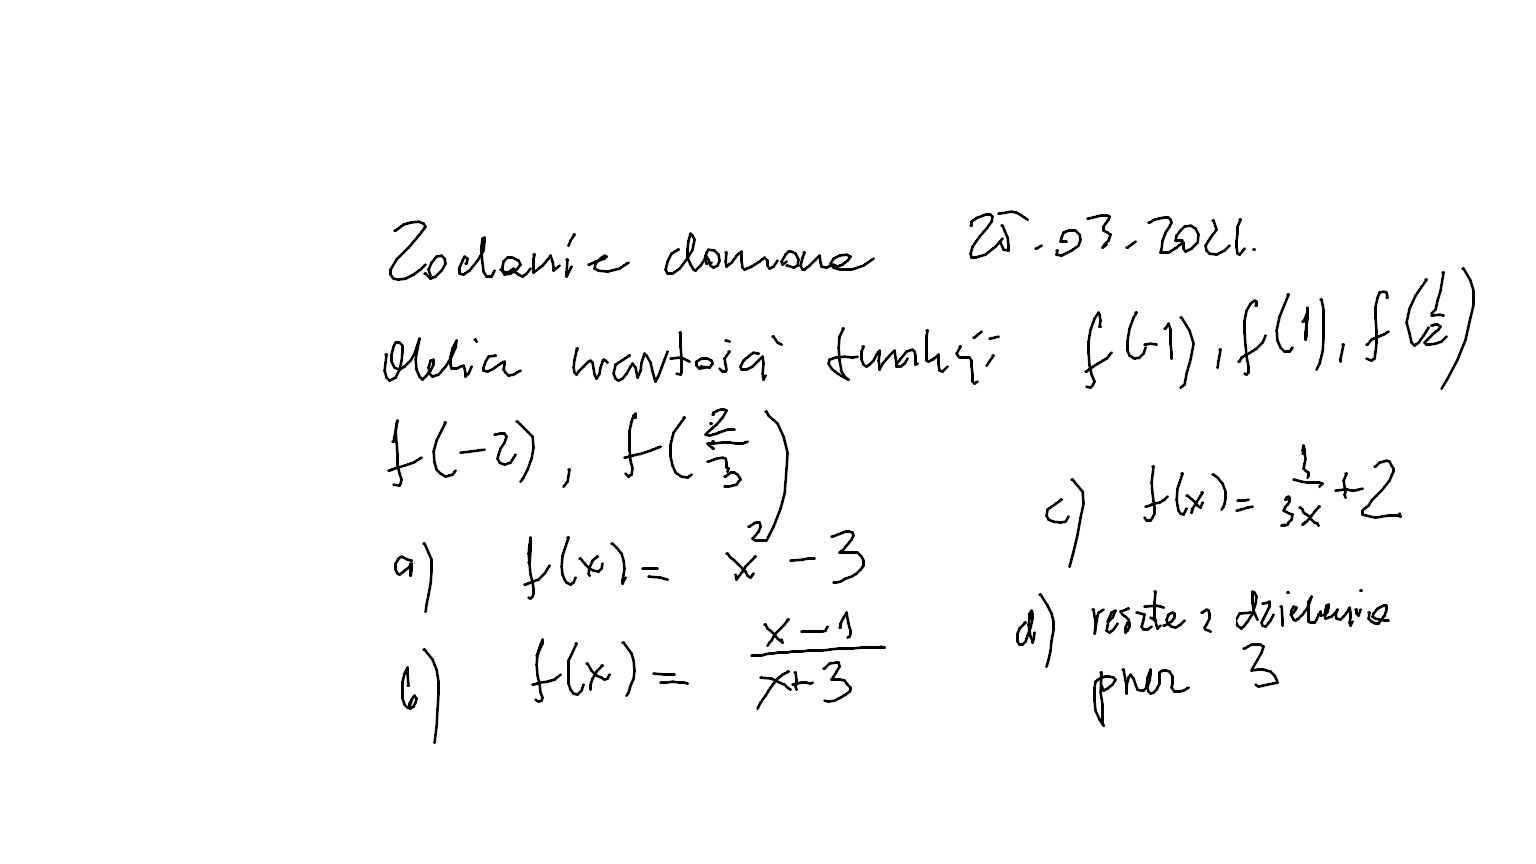 Zadanie domowe 25.03.2021.
Oblicz wartości funkcji f(-1), f(1), f(1/2)
f(-2), f(2/3)
a) f(x) = x² - 3
b) f(x) = x-1/x+3
c) f(x) = 1/3x + 2
d) reszta z dzielenia
przez 3